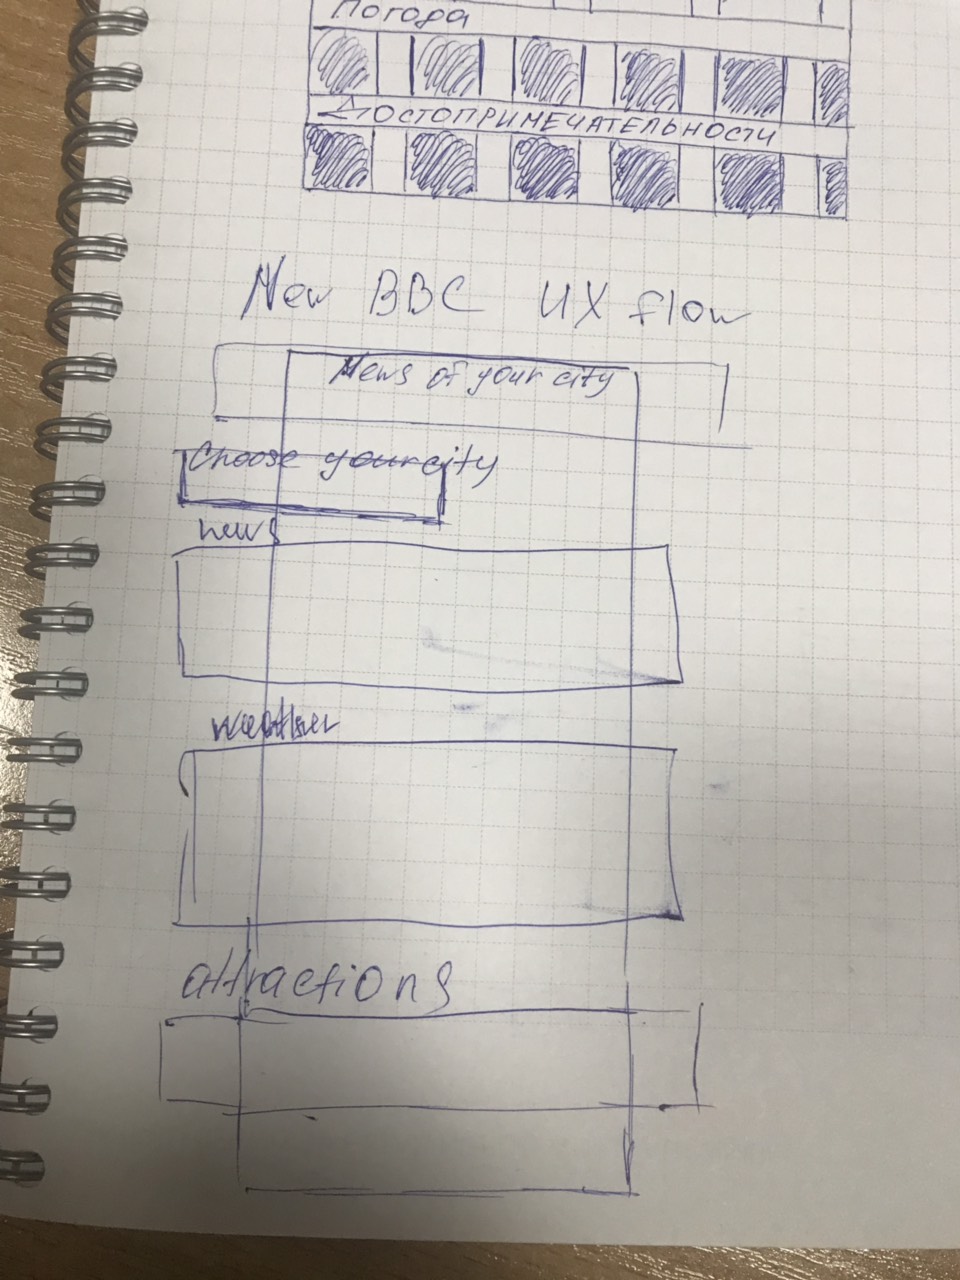 Погода
Достопримечательности
New BBC UX flow
News of your city
Choose your city
news
weather
attractions